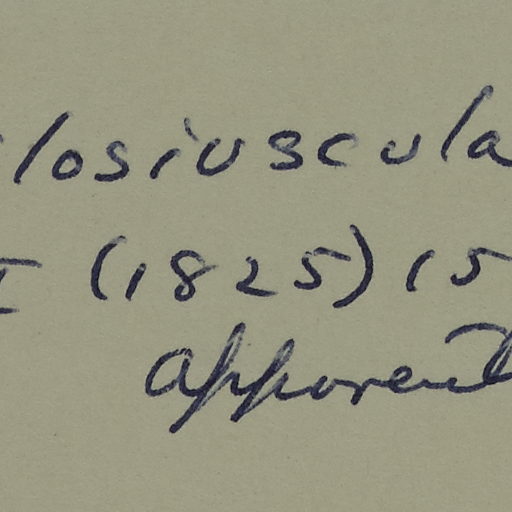 losiuscula
I (1825) 15
apparent